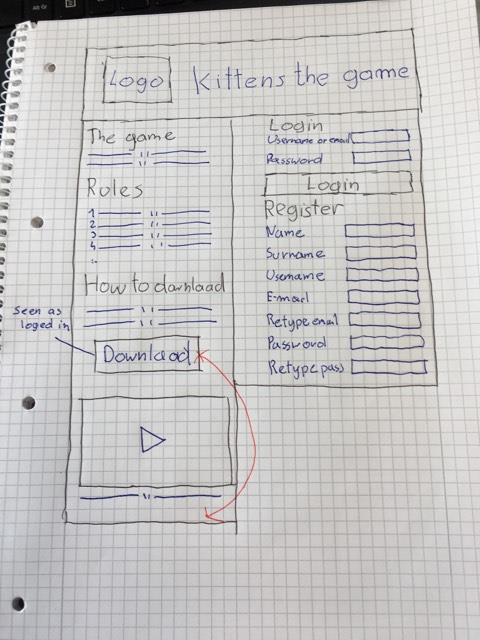 Logo
Kittens the game
The game
Rules
1
2
3
4
How to download
Seen as
loged in
Download
Login
Username or email
Password
Login
Register
Name
Surname
Username
E-mail
Retype email
Password
Retype pass